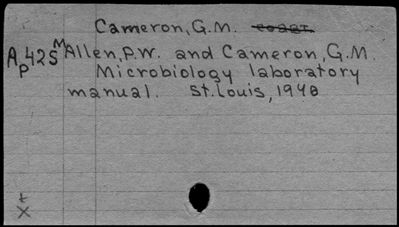 Cameron, G.M. coaut.
Ap425M Allen, P.W. and Cameron, G.M.
Microbiology laboratory
manual. St. Louis, 1940
t
X